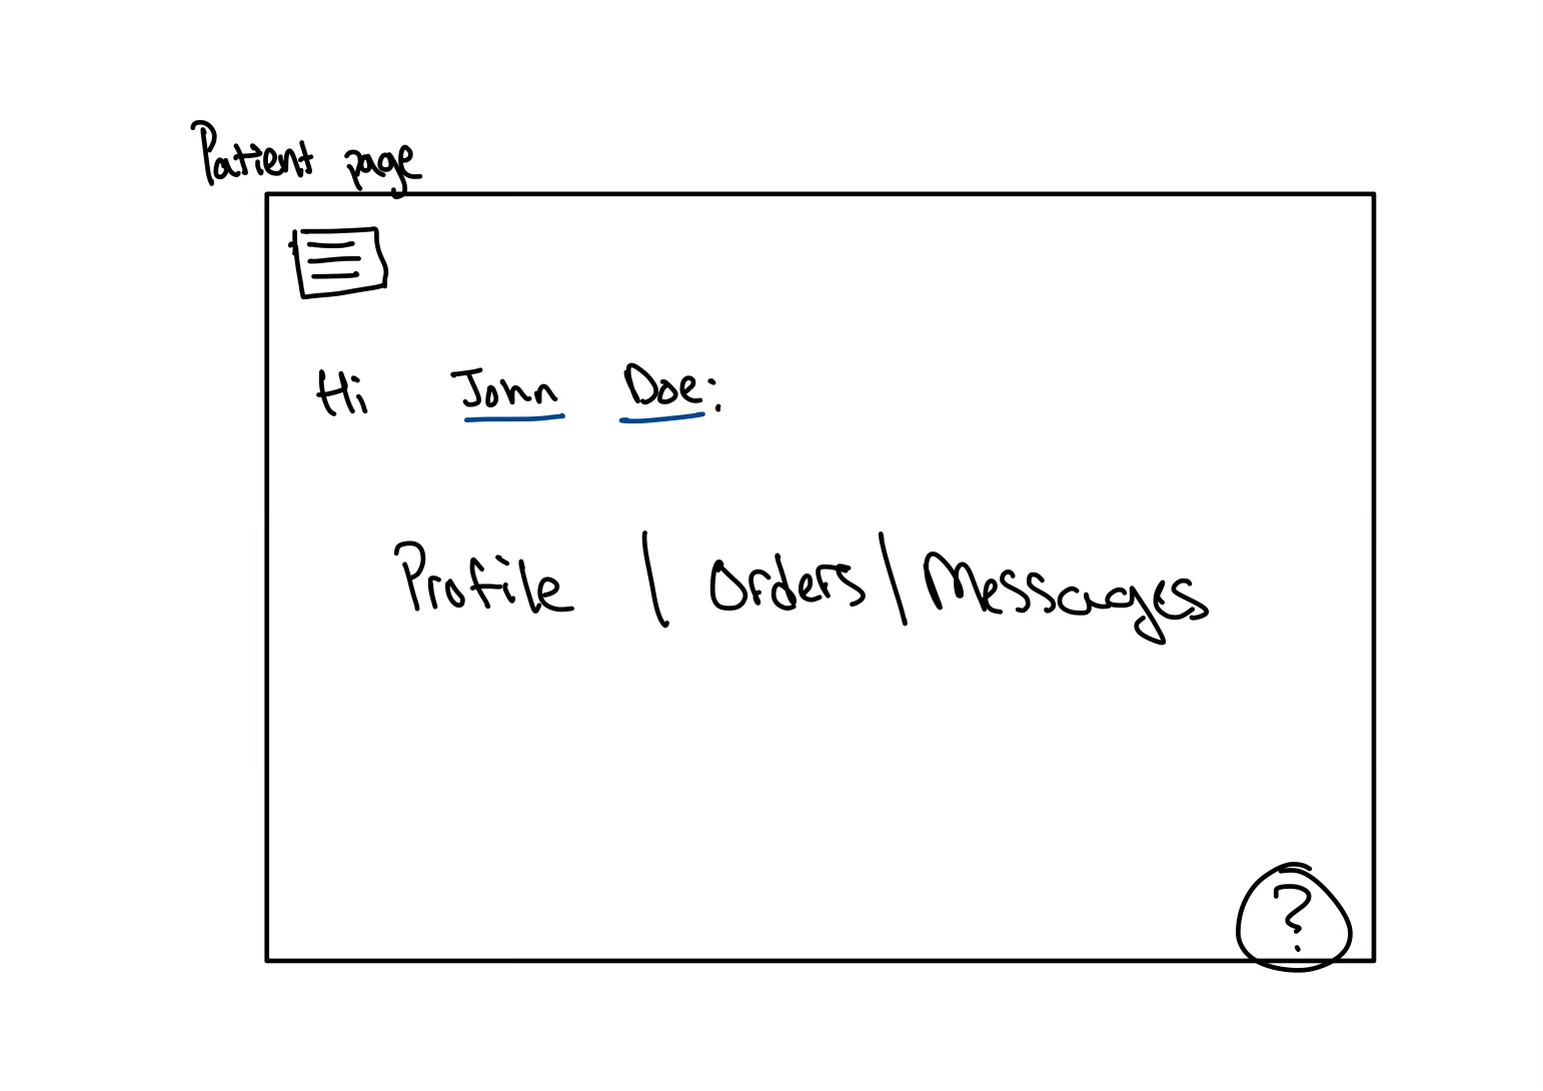 Patient page
Hi John Doe:
Profile | Orders | Messages
?